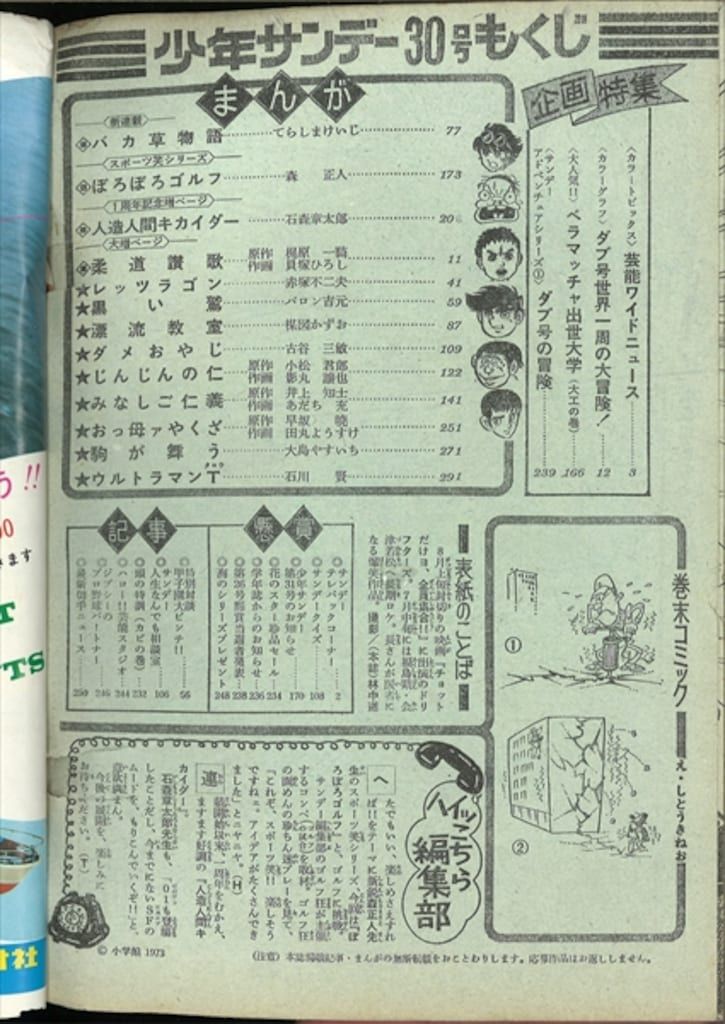 少年サンデー30号もくじ
まんが
新連載
バカ草物語 てらしまけいじ 77
スポーツ笑シリーズ
ぼろぼろゴルフ 森 正人 173
1周年記念増ページ
人造人間キカイダー 石森章太郎 20
大増ページ
柔道讃歌 原作 梶原一騎 作画 貝塚ひろし 11
★レッツラゴン 赤塚不二夫 41
★黒い鷲 バロン吉元 59
★漂流教室 楳図かずお 87
★ダメおやじ 古谷三敏 109
★じんじんの仁 原作 小松君郎 作画 影丸譲也 122
★みなしご仁義 原作 井上知士 作画 あだち充 141
★おっ母ァやくざ 原作 早坂暁 作画 田丸ようすけ 251
★駒が舞う 大島やすいち 271
★ウルトラマンT 石川 賢 291
企画特集
〈カラートピックス〉芸能ワイドニュース 3
〈カラーグラフ〉ダブ号世界一周の大冒険! 12
〈大人気!!〉ベラマッチャ出世大学(大工の巻) 166
〈サンデーアドベンチュアシリーズ①〉ダブ号の冒険 239
懸賞
サンデーテレパックコーナー 2
サンデークイズ 108
少年サンデー第31号のお知らせ 170
花のスター珍品セール 234
学年誌からのお知らせ 236
第26号懸賞当選者発表 238
海のシリーズプレゼント 248
記事
特別対談 甲子園大ピンチ!! 56
サンデー人生なんでも相談室 106
頭の特訓(カビの巻) 232
ハロー!!芸能スタジオ 244
ジプシーの 246
プロ野球パートナー
最新切手ニュース 250
表紙のことば
8月上旬封切りの映画『チョットだけヨ、全員集合!!』に出演のドリフターズ。7月中旬には福島県・会津若松へ長期ロケ。長さんが医者になる爆笑作品。撮影/(本誌)林中道
巻末コミック
え・しとうきねお
①
②
ハイッこちら編集部
へたでもいい、楽しめさえすれば!!をテーマに新鋭森正人先生のスポーツ笑シリーズ、今回は『ぼろぼろゴルフ』と、ゴルフに挑戦。
サンデー編集部のゴルフ狂が主催するコンペのもようを取材。ゴルフ狂の面めんの珍ちん迷プレーを見て、「これぞ、スポーツ笑!! 楽しそうですねェ。アイデアがたくさんできました」とニヤニヤ。(H)
連載開始以来、一周年をむかえ、ますます好調の『人造人間キカイダー』。
石森章太郎先生も、「01も登場したことだし、今までにないSFのムードを、もりこんでいくぞ!!」と、意欲満まん。
今後の展開を、楽しみにお待ちください。(T)
© 小学館 1973
(注意)本誌掲載記事・まんがの無断転載をおことわりします。応募作品はお返ししません。